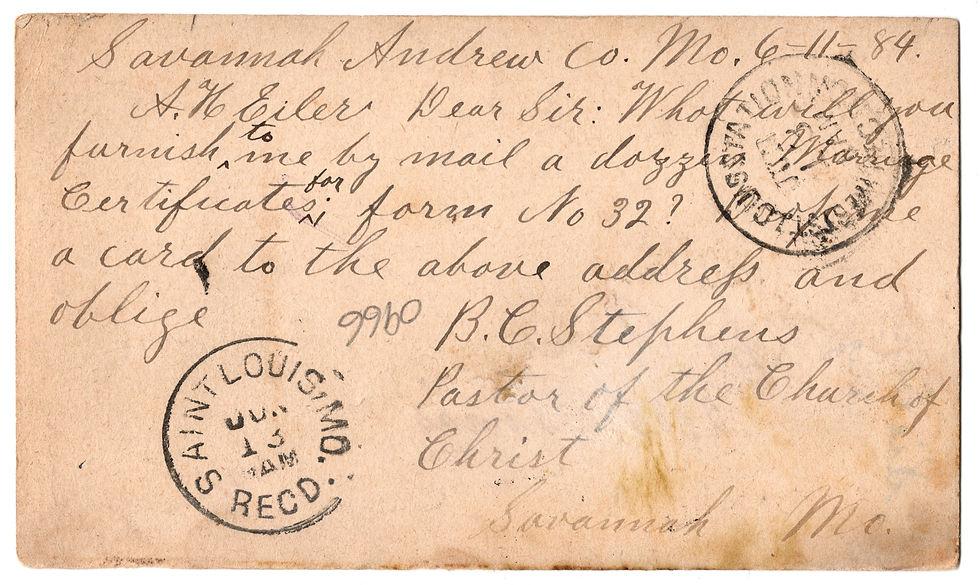 Savannah Andrew Co. Mo. 6-11-84.
A. H. Eiler Dear Sir: What will you
furnish to me by mail a dozzen Marriage
Certificates; for form No 32? me
a card to the above address and
oblige
0966
B. C. Stephens
Pastor of the Church of
Christ
Savannah Mo.
SAINT LOUIS, MO.
JUN
13
AM
REC'D.